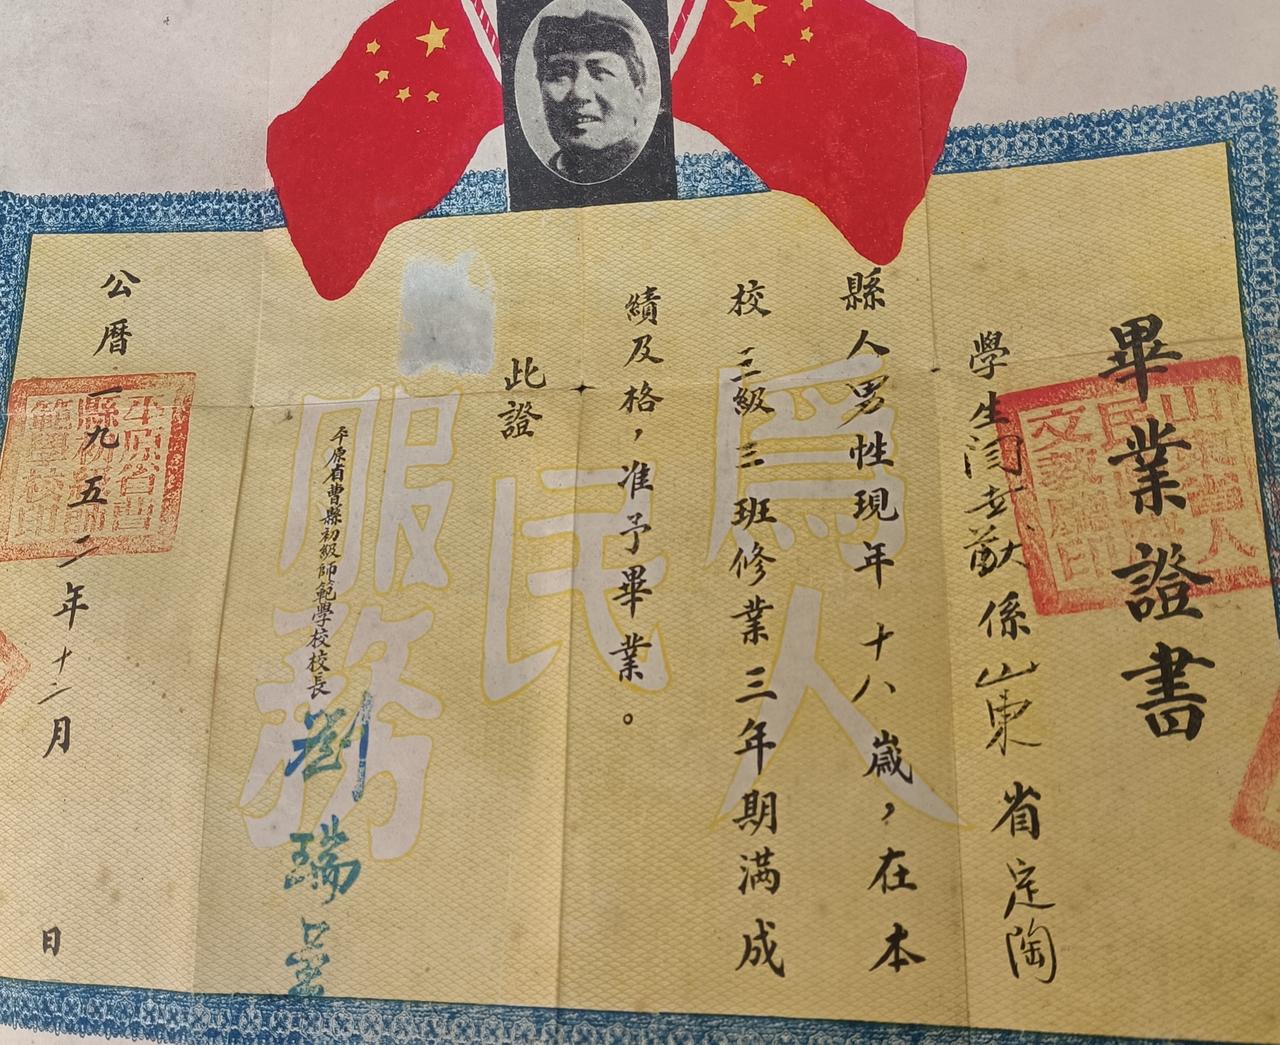 畢業證書
學生閆幸猷係山東省定陶
縣人男性現年十八歲，在本
校三級三班修業三年期满成
績及格，准予畢業。
此證
平原省曹縣初級師範學校校長
劉瑞
公曆一九五二年十二月
日
爲人民服務
山東省人民政府文教廳印
平原省曹縣初級師範學校印